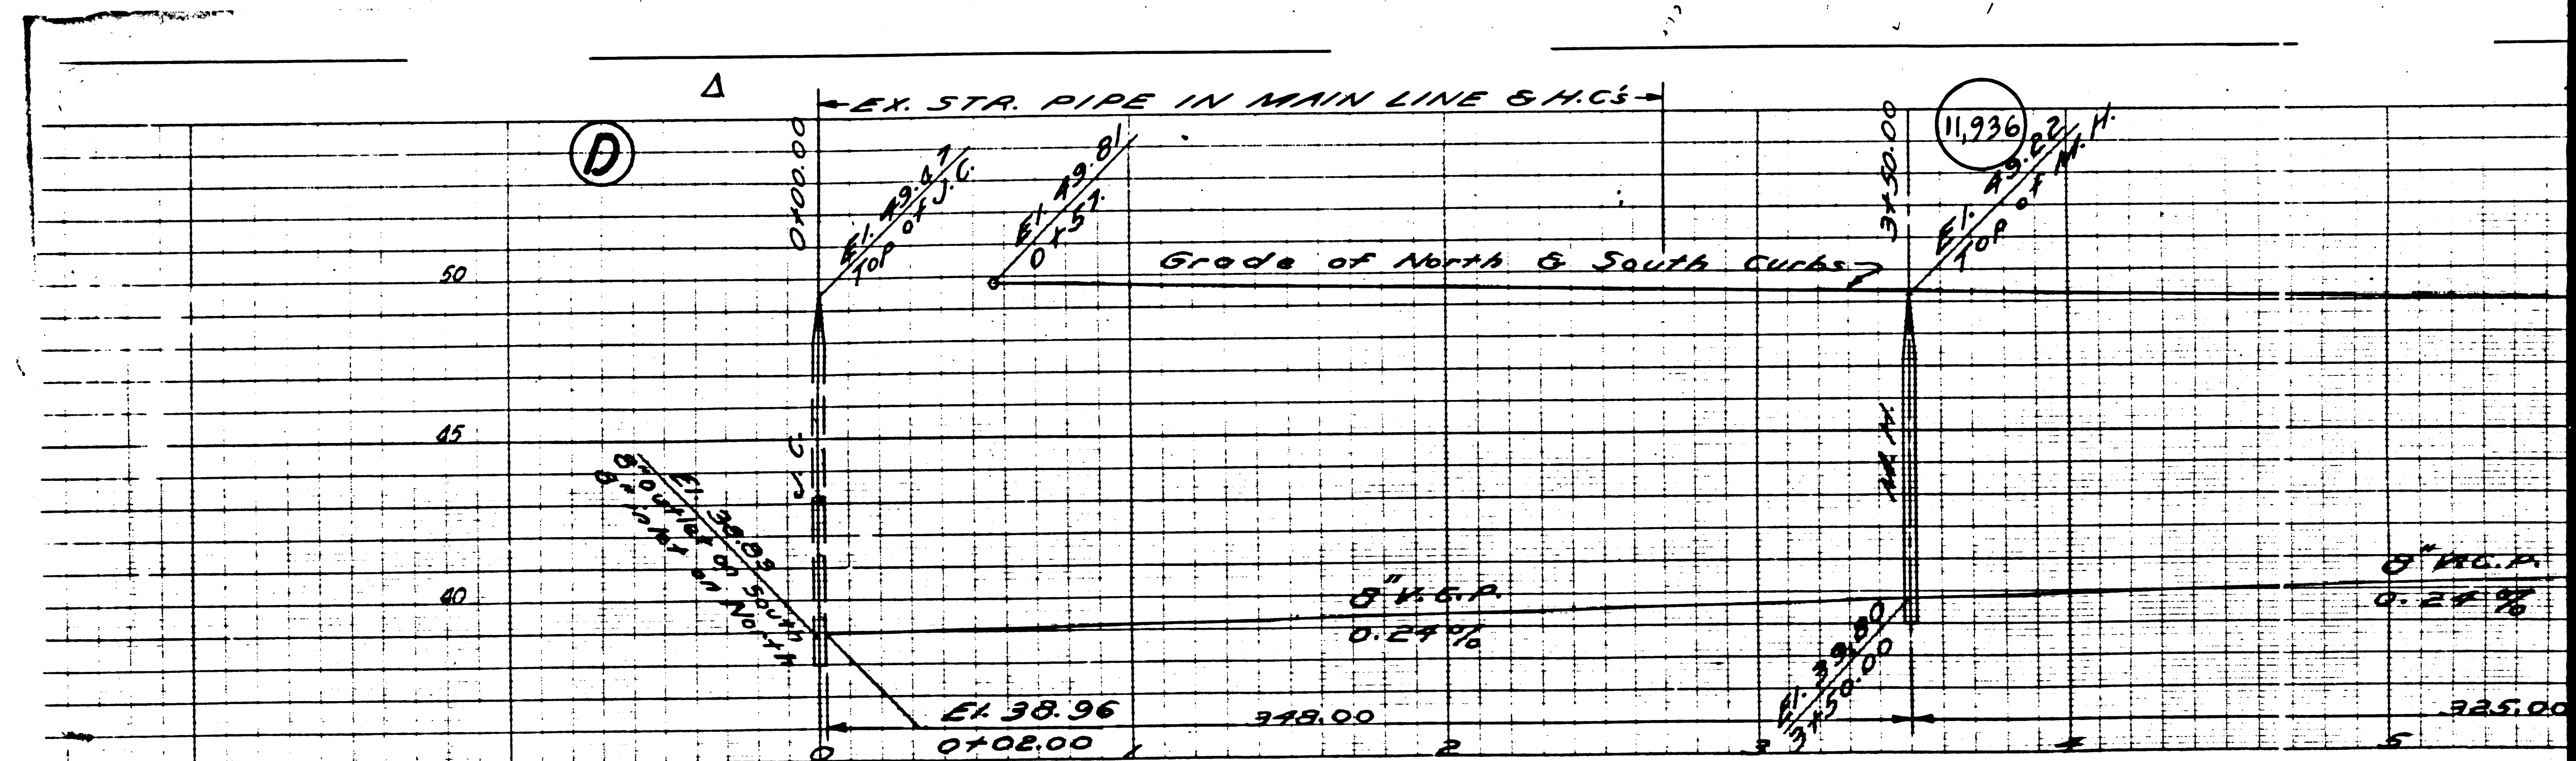 Δ
EX. STR. PIPE IN MAIN LINE & H.C's
D
0+00.00
El. 49.47
Top of J.C.
El 49.81
0+57.
3+50.00
11,936
El. 49.22
Top of M.H.
Grade of North & South Curbs
50
45
40
J.C.
M.H.
El. 38.83
8" outlet on South
8" inlet on North
8" V.C.P.
0.24%
8" V.C.P.
0.24%
El. 39.80
3+50.00
El. 38.96
0+02.00
348.00
325.00
0 1 2 3 4 5